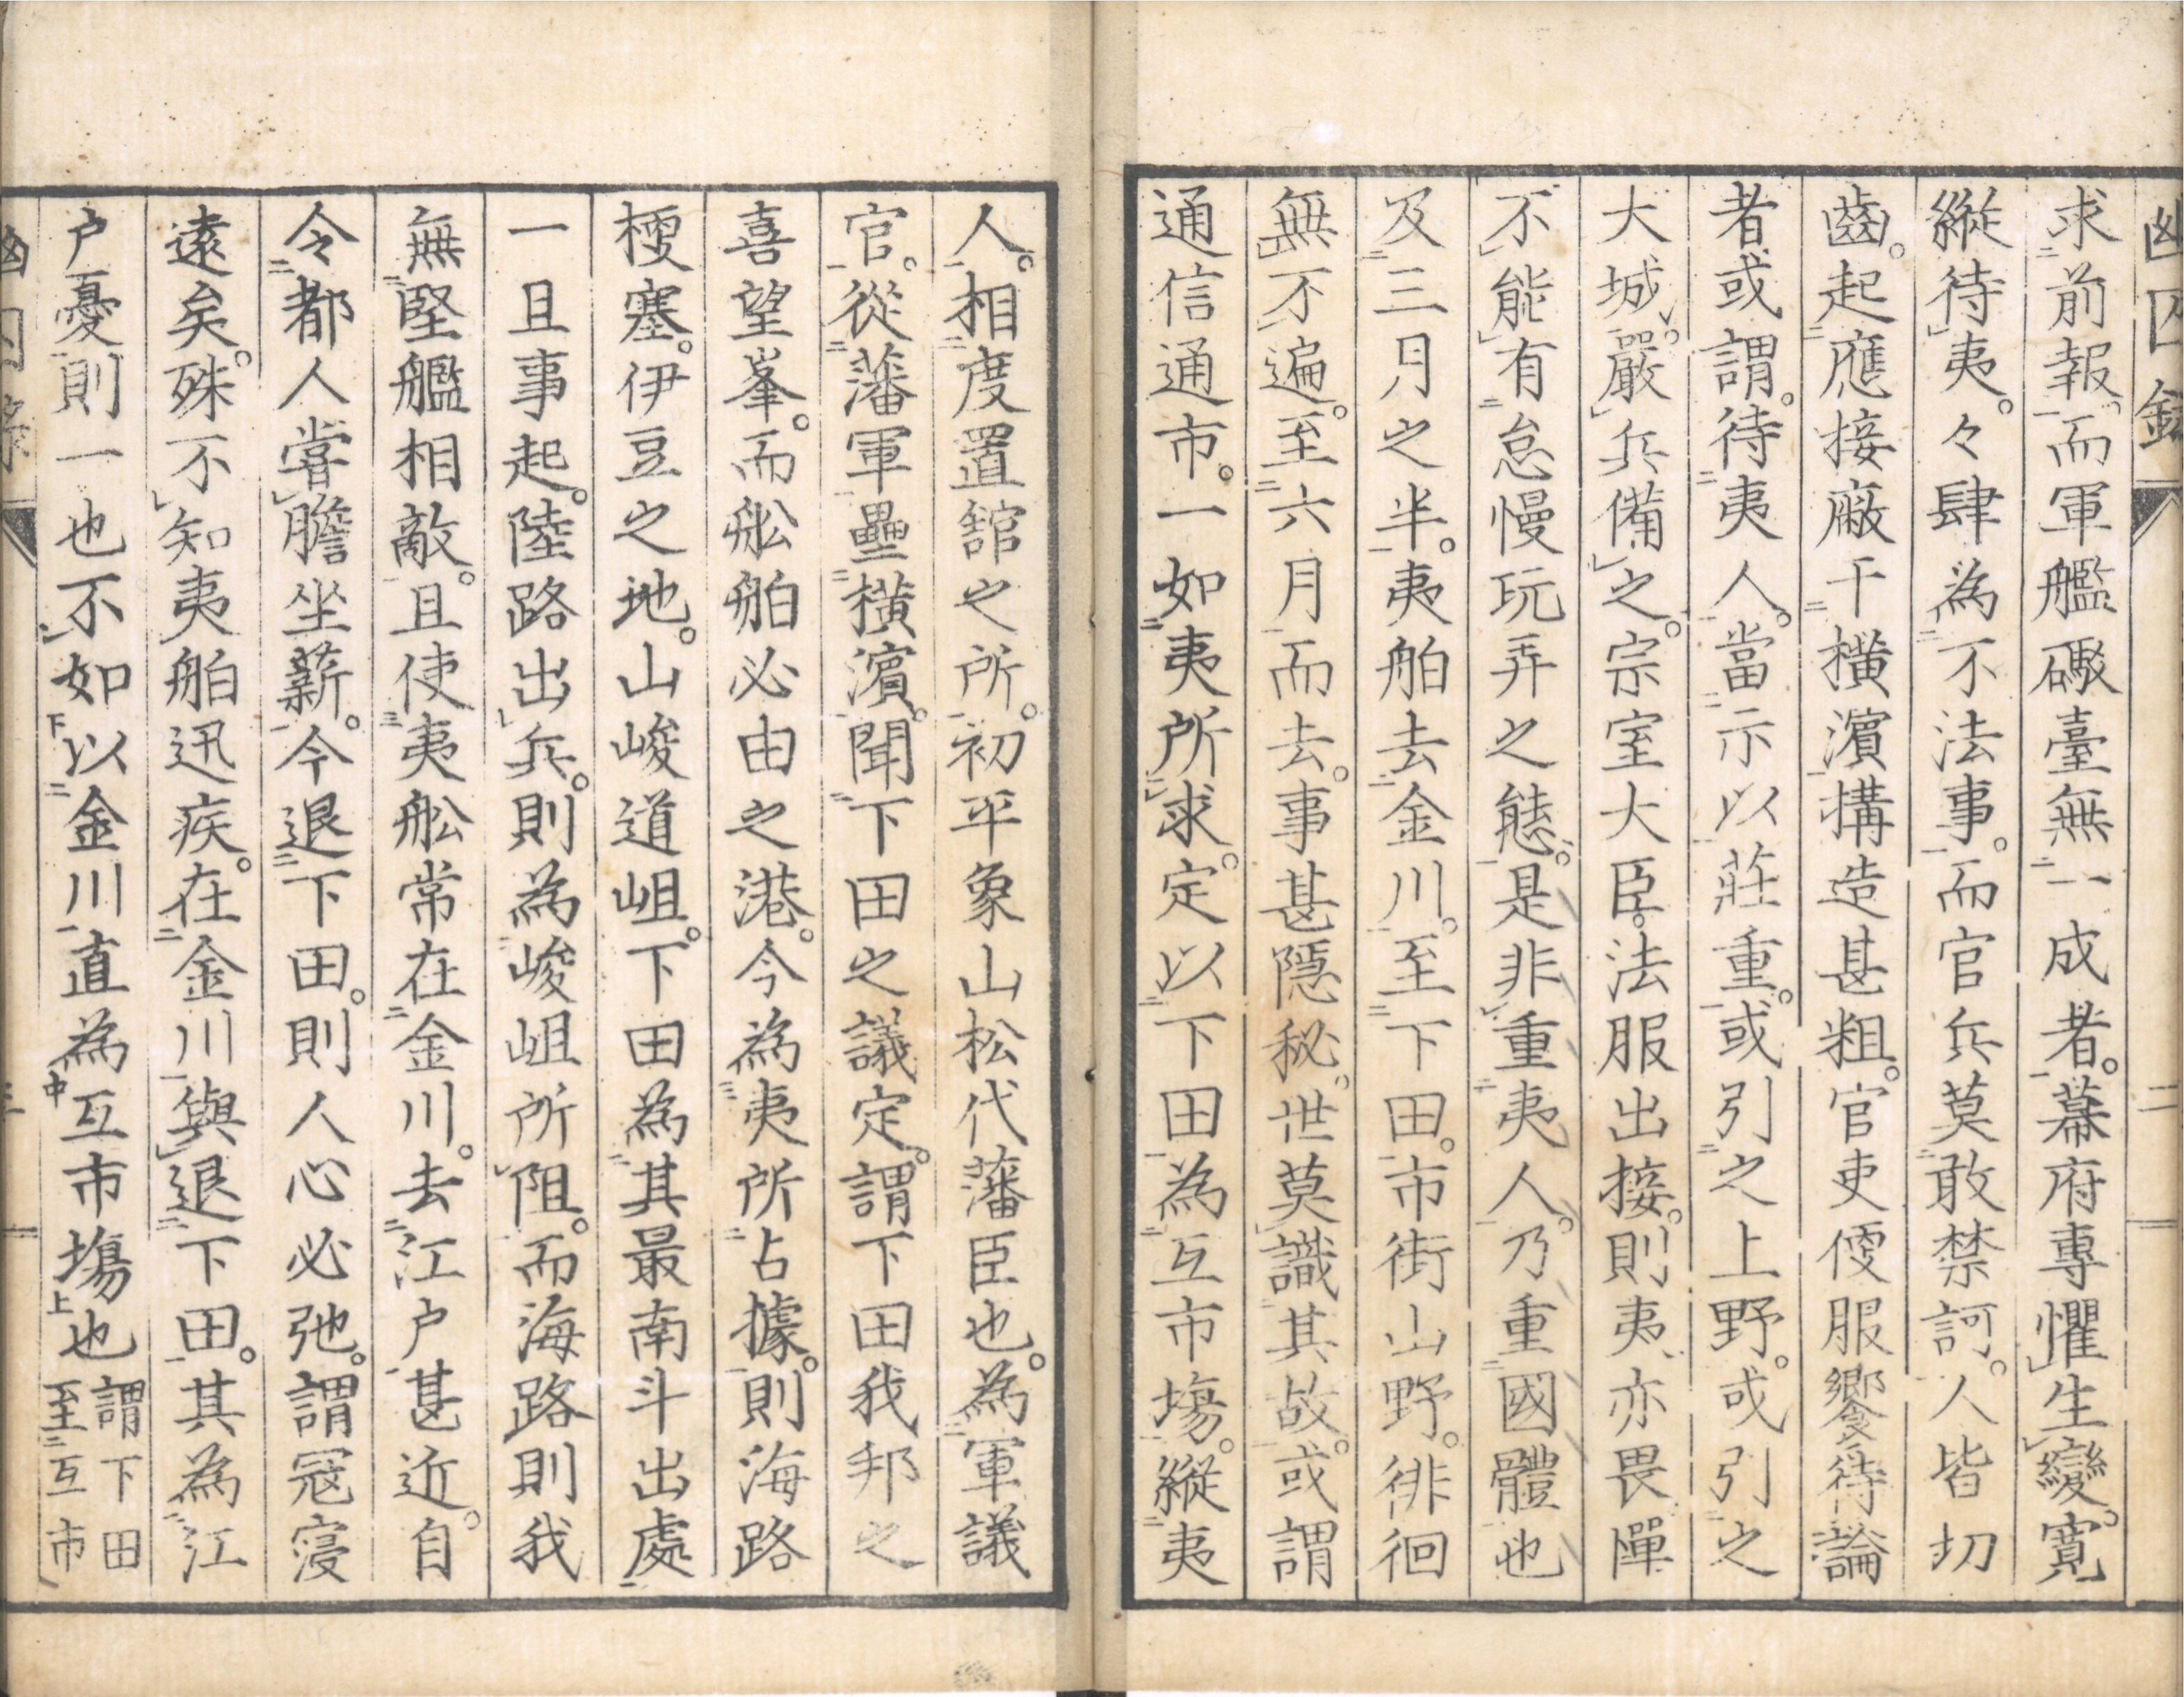 幽囚録
二
求前報而軍艦礟臺無一成者。幕府專懼生變。寛
縱待夷。々肆為不法事。而官兵莫敢禁訶。人皆切
齒。起應接廠于橫濱構造甚粗。官吏便服饗待論
者或謂。待夷人。當示以莊重。或引之上野。或引之
大城。嚴兵備之。宗室大臣。法服出接。則夷亦畏憚
不能有怠慢玩弄之態。是非重夷人。乃重國體也
及三月之半。夷舶去金川。至下田。市街山野。徘徊
無不遍。至六月而去。事甚隱秘。世莫識其故。或謂
通信通市。一如夷所求。定以下田為互市場。縱夷
人。相度置舘之所。初平象山松代藩臣也。為軍議
官。從藩軍壘橫濱。聞下田之議定。謂下田我邦之
喜望峯。而舩舶必由之港。今為夷所占據。則海路
梗塞。伊豆之地。山峻道岨。下田為其最南斗出處
一旦事起。陸路出兵。則為峻岨所阻。而海路則我
無堅艦相敵。且使夷舩常在金川。去江戸甚近。自
令都人嘗膽坐薪。今退下田。則人心必弛。謂冦寖
遠矣。殊不知夷舶迅疾。在金川與退下田。其為江
戸憂則一也不如以金川直為互市場也謂下田
至互市